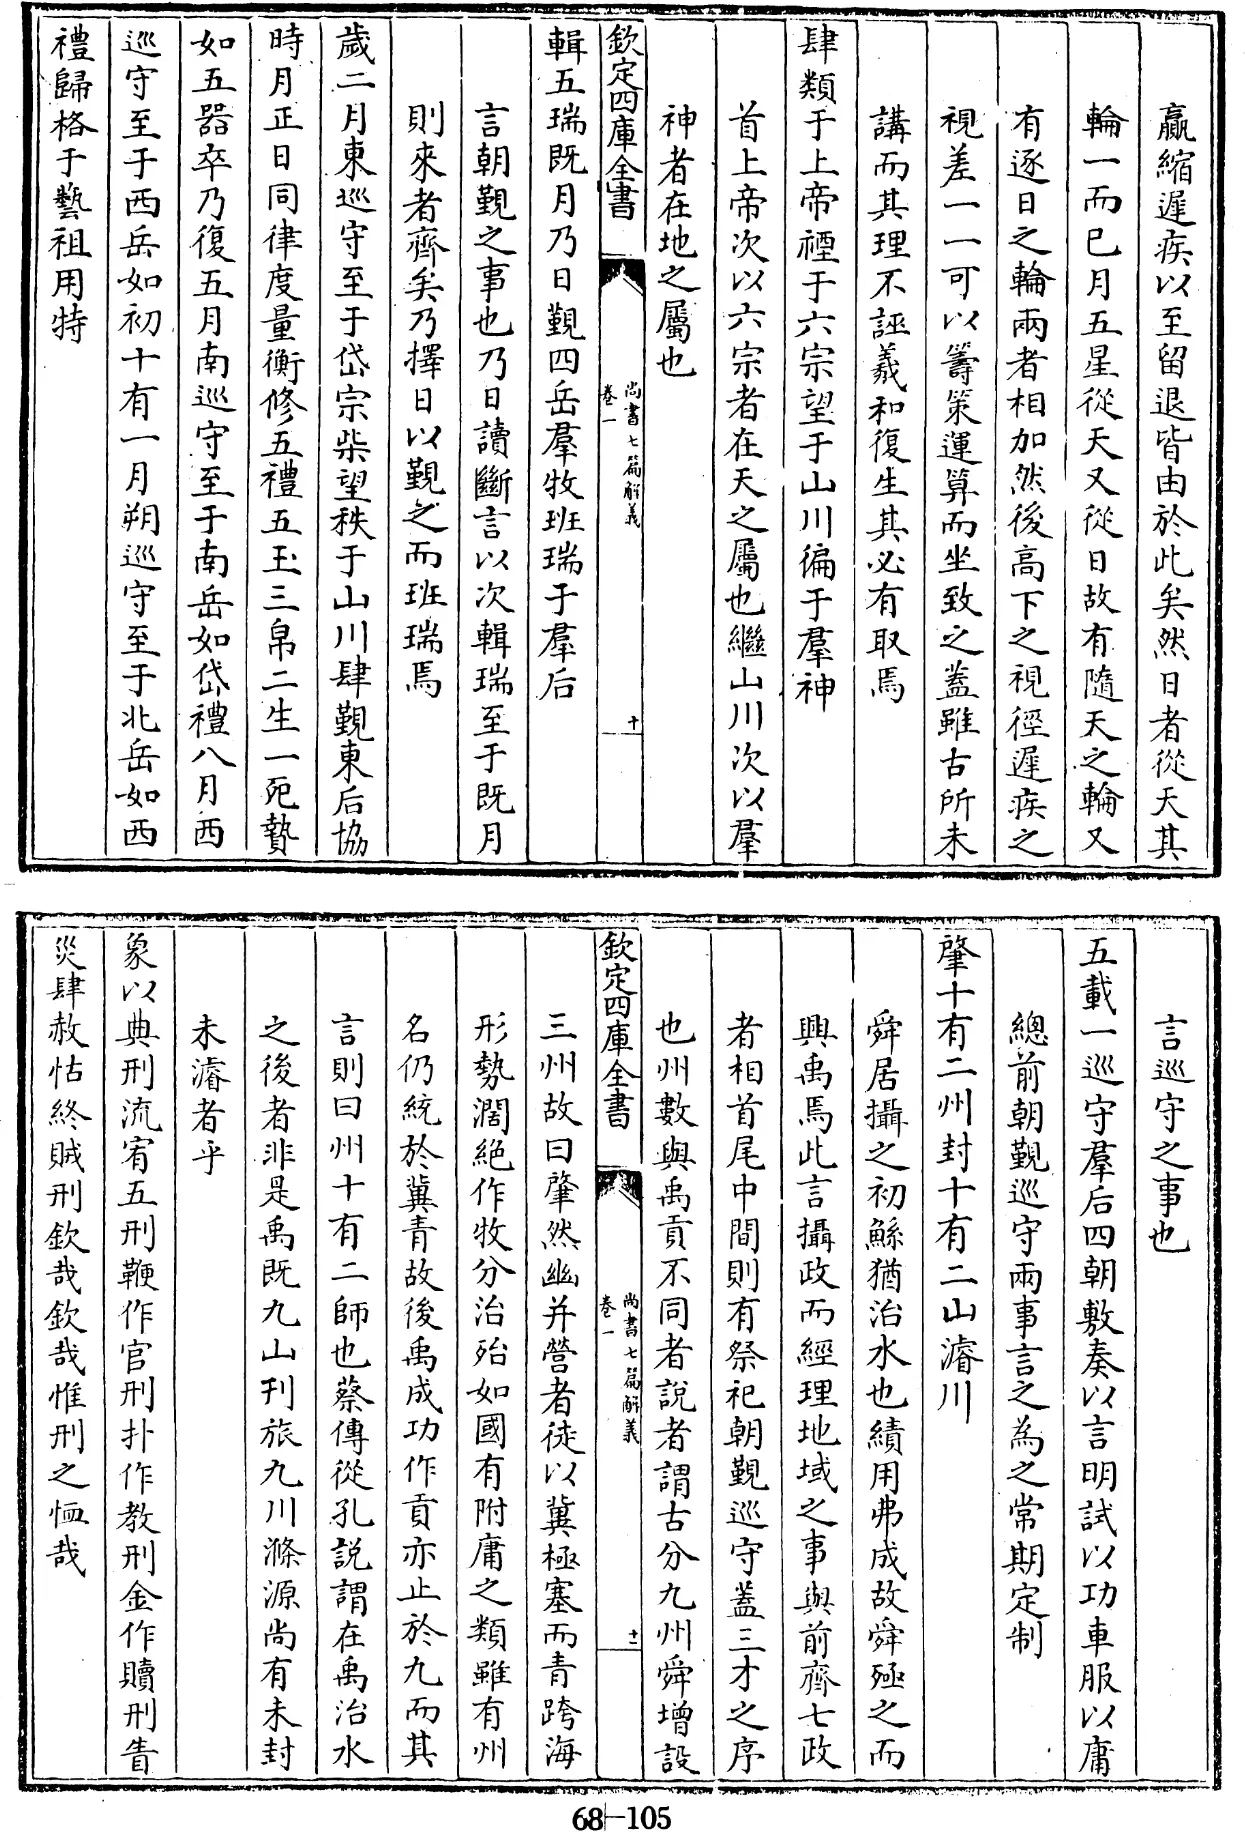 贏縮遲疾以至留退皆由於此矣然日者從天其
輪一而已月五星從天又從日故有隨天之輪又
有逐日之輪兩者相加然後高下之視徑遲疾之
視差一一可以籌策運算而坐致之蓋雖古所未
講而其理不誣羲和復生其必有取焉
肆類于上帝禋于六宗望于山川徧于羣神
首上帝次以六宗者在天之屬也繼山川次以羣
神者在地之屬也
欽定四庫全書
尚書七篇解義
卷一
十
輯五瑞既月乃日覲四岳羣牧班瑞于羣后
言朝覲之事也乃日讀斷言以次輯瑞至于既月
則來者齊矣乃擇日以覲之而班瑞焉
歲二月東巡守至于岱宗柴望秩于山川肆覲東后協
時月正日同律度量衡修五禮五玉三帛二生一死贄
如五器卒乃復五月南巡守至于南岳如岱禮八月西
巡守至于西岳如初十有一月朔巡守至于北岳如西
禮歸格于藝祖用特
言巡守之事也
五載一巡守羣后四朝敷奏以言明試以功車服以庸
總前朝覲巡守兩事言之為之常期定制
肇十有二州封十有二山濬川
舜居攝之初鯀猶治水也績用弗成故舜殛之而
興禹焉此言攝政而經理地域之事與前齊七政
者相首尾中間則有祭祀朝覲巡守蓋三才之序
也州數與禹貢不同者說者謂古分九州舜增設
欽定四庫全書
尚書七篇解義
卷一
十一
三州故曰肇然幽并營者徒以冀極塞而青跨海
形勢濶絕作牧分治殆如國有附庸之類雖有州
名仍統於冀青故後禹成功作貢亦止於九而其
言則曰州十有二師也蔡傳從孔說謂在禹治水
之後者非是禹既九山刊旅九川滌源尚有未封
未濬者乎
象以典刑流宥五刑鞭作官刑扑作教刑金作贖刑眚
災肆赦怙終賊刑欽哉欽哉惟刑之恤哉
68-105